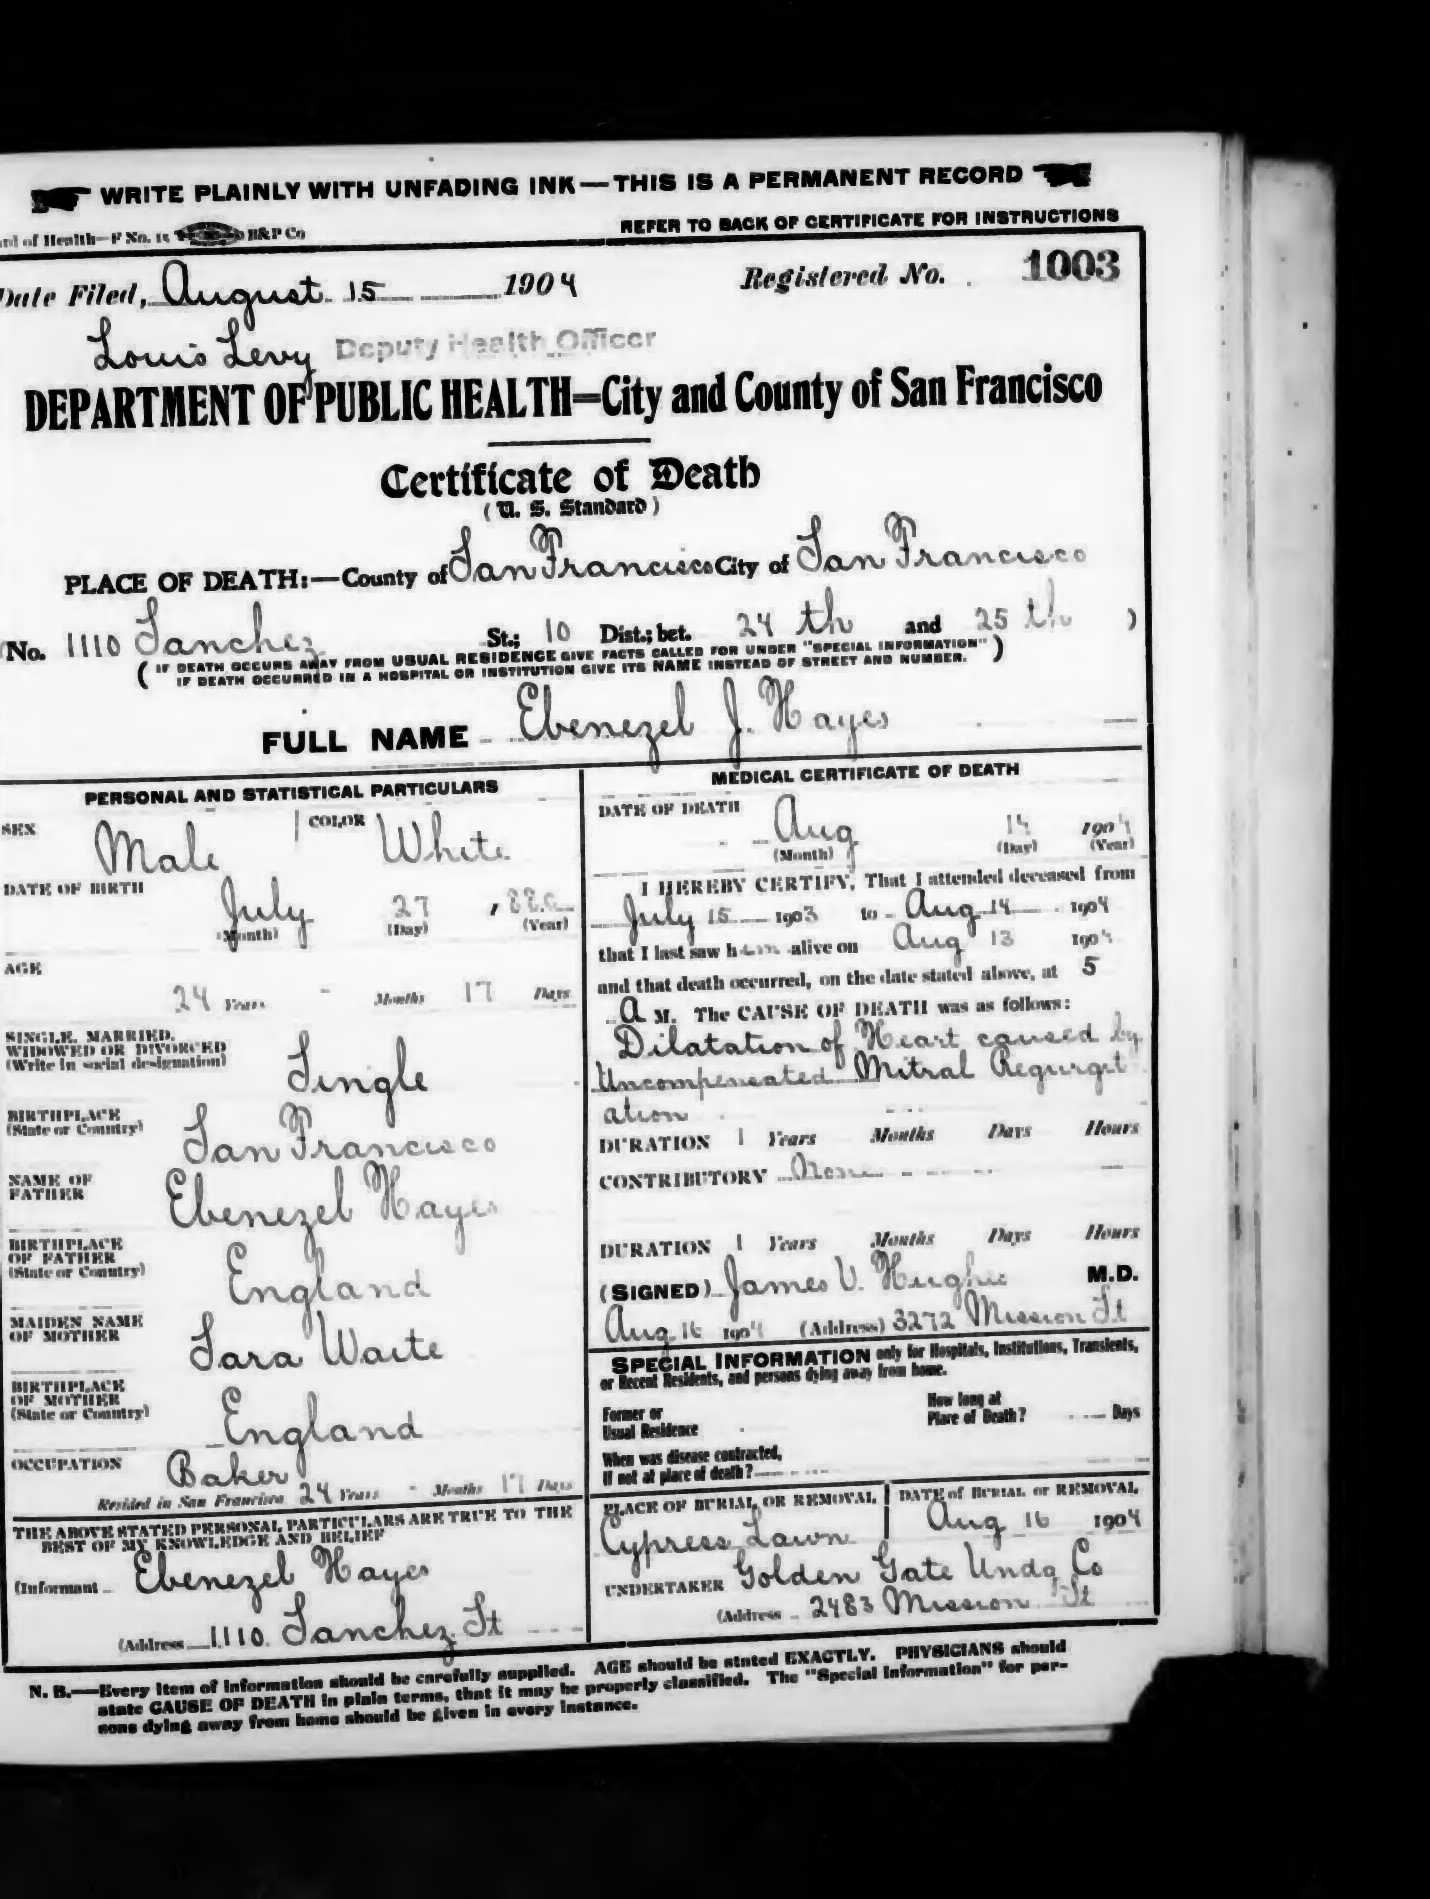 WRITE PLAINLY WITH UNFADING INK—THIS IS A PERMANENT RECORD
of Health—F No. 15 H&P Co REFER TO BACK OF CERTIFICATE FOR INSTRUCTIONS
Date Filed, August 15 1904 Registered No. 1003
Louis Levy Deputy Health Officer
DEPARTMENT OF PUBLIC HEALTH=City and County of San Francisco
Certificate of Death
(U. S. Standard)
PLACE OF DEATH:—County of San Francisco City of San Francisco
No. 1110 Sanchez St.; 10 Dist.; bet. 24 th and 25 th )
( IF DEATH OCCURS AWAY FROM USUAL RESIDENCE GIVE FACTS CALLED FOR UNDER "SPECIAL INFORMATION" )
IF DEATH OCCURRED IN A HOSPITAL OR INSTITUTION GIVE ITS NAME INSTEAD OF STREET AND NUMBER.
FULL NAME Ebenezel J. Hayes
PERSONAL AND STATISTICAL PARTICULARS
SEX Male COLOR White
DATE OF BIRTH July 27
(Month) (Day) (Year)
AGE
24 Years - Months 17 Days
SINGLE, MARRIED,
WIDOWED OR DIVORCED
(Write in social designation) Single
BIRTHPLACE
(State or Country) San Francisco
NAME OF
FATHER Ebenezel Hayes
BIRTHPLACE
OF FATHER
(State or Country) England
MAIDEN NAME
OF MOTHER Sara Waite
BIRTHPLACE
OF MOTHER
(State or Country) England
OCCUPATION Baker
Resided in San Francisco 24 Years - Months 17 Days
THE ABOVE STATED PERSONAL PARTICULARS ARE TRUE TO THE
BEST OF MY KNOWLEDGE AND BELIEF
(Informant Ebenezel Hayes
(Address 1110 Sanchez St
MEDICAL CERTIFICATE OF DEATH
DATE OF DEATH Aug 14 1904
(Month) (Day) (Year)
I HEREBY CERTIFY, That I attended deceased from
July 15 1903 to Aug 14 1904
that I last saw him alive on Aug 13 1904
and that death occurred, on the date stated above, at 5
A M. The CAUSE OF DEATH was as follows:
Dilatation of Heart caused by
Uncompensated Mitral Regurgit
ation
DURATION 1 Years Months Days Hours
CONTRIBUTORY None
DURATION 1 Years Months Days Hours
(SIGNED) James V. Hughes M.D.
Aug 16 1904 (Address) 3272 Mission St
SPECIAL INFORMATION only for Hospitals, Institutions, Transients,
or Recent Residents, and persons dying away from home.
Former or
Usual Residence
How long at
Place of Death? Days
When was disease contracted,
If not at place of death?
PLACE OF BURIAL OR REMOVAL DATE of BURIAL or REMOVAL
Cypress Lawn Aug 16 1904
UNDERTAKER Golden Gate Undg Co
(Address 2483 Mission St
N. B.—Every item of information should be carefully supplied. AGE should be stated EXACTLY. PHYSICIANS should
state CAUSE OF DEATH in plain terms, that it may be properly classified. The "Special Information" for per-
sons dying away from home should be given in every instance.